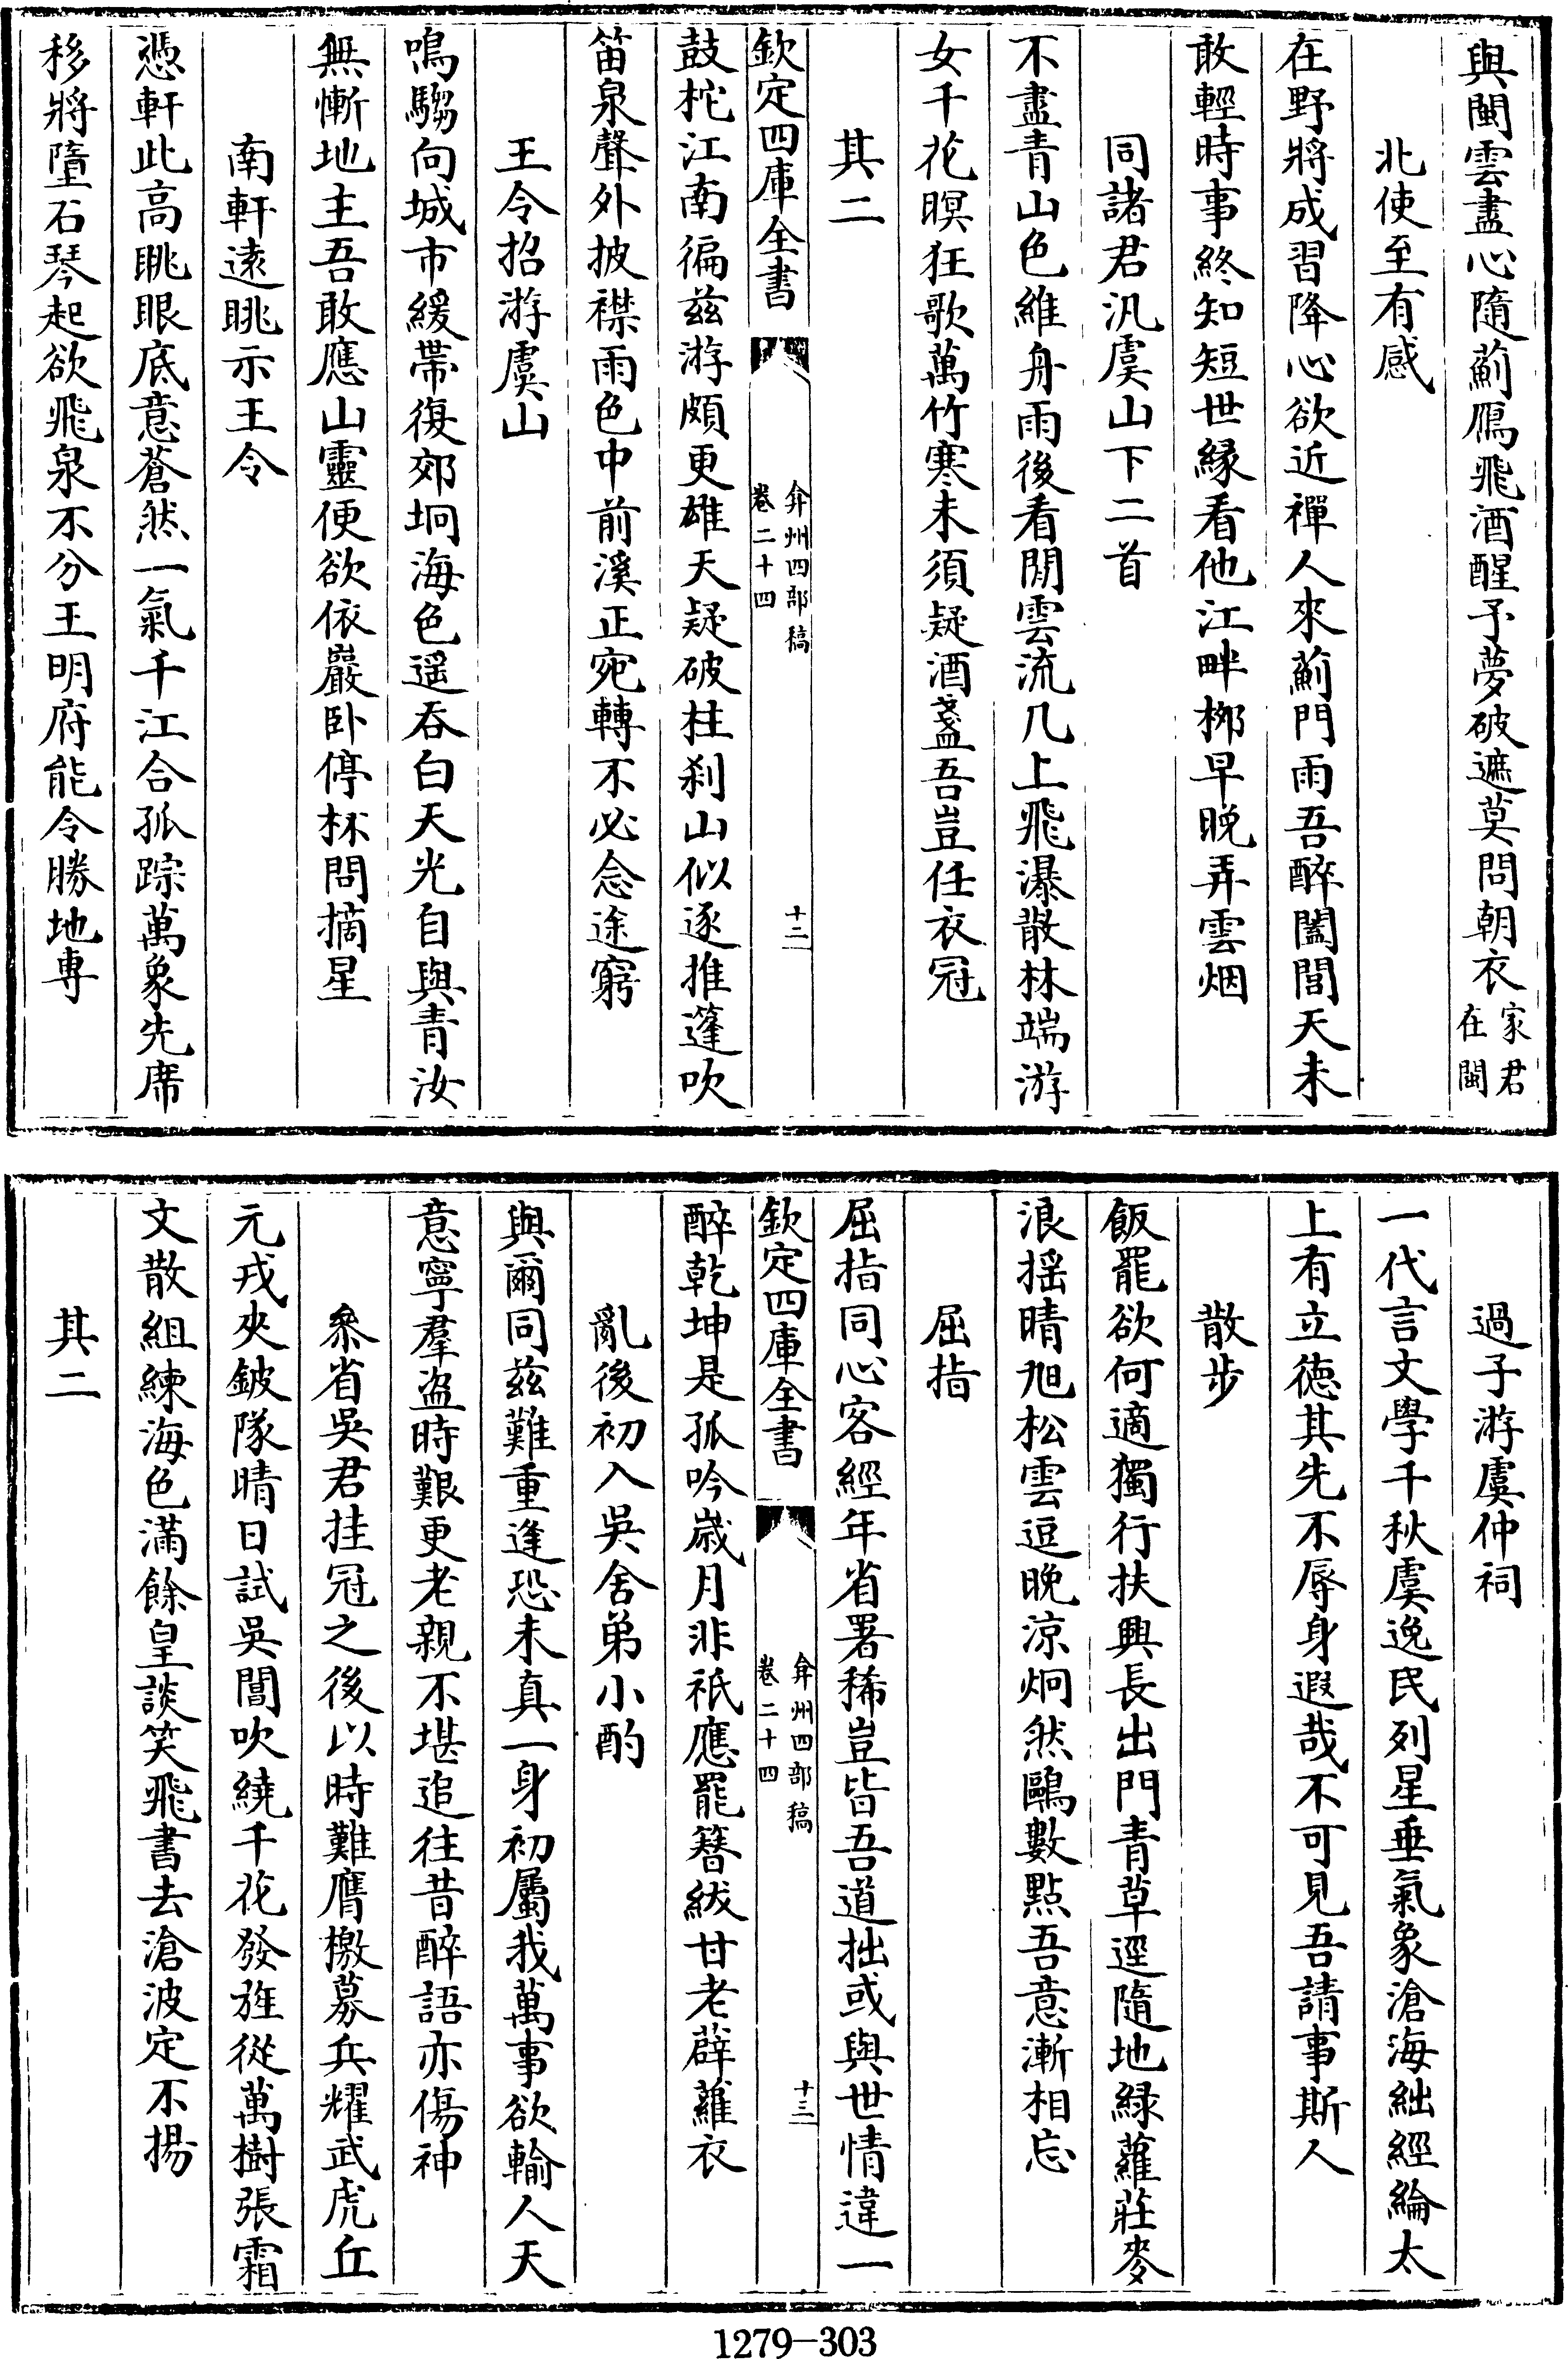 與閩雲盡心隨薊鴈飛酒醒予夢破遮莫問朝衣家君在閩
北使至有感
在野將成習降心欲近禪人來薊門雨吾醉闔閭天未
敢輕時事終知短世緣看他江畔柳早晚弄雲烟
同諸君汎虞山下二首
不盡青山色維舟雨後看閒雲流几上飛瀑散林端游
女千花暝狂歌萬竹寒未須疑酒盞吾豈任衣冠
其二
欽定四庫全書
弇州四部稿
卷二十四
十二
鼓柁江南徧兹游頗更雄天疑破柱刹山似逐推蓬吹
笛泉聲外披襟雨色中前溪正宛轉不必念途窮
王令招游虞山
鳴騶向城市緩帶復郊坰海色遥吞白天光自與青汝
無慚地主吾敢應山靈便欲依巖卧停杯問摘星
南軒遠眺示王令
憑軒此高眺眼底意蒼然一氣千江合孤踪萬象先席
移將墮石琴起欲飛泉不分王明府能令勝地専
過子游虞仲祠
一代言文學千秋虞逸民列星垂氣象滄海絀經綸太
上有立德其先不辱身遐哉不可見吾請事斯人
散步
飯罷欲何適獨行扶興長出門青草逕隨地緑蘿莊麥
浪揺晴旭松雲逗晚涼炯然鷗數點吾意漸相忘
屈指
屈指同心客經年省署稀豈皆吾道拙或與世情違一
欽定四庫全書
弇州四部稿
卷二十四
十三
醉乾坤是孤吟嵗月非祇應罷簪紱甘老薜蘿衣
亂後初入吳舍弟小酌
與爾同兹難重逢恐未真一身初屬我萬事欲輸人天
意寧羣盗時艱更老親不堪追往昔醉語亦傷神
叅省吳君挂冠之後以時難膺檄募兵耀武虎丘
元戎夾鈹隊晴日試吳閶吹繞千花發旌從萬樹張霜
文散組練海色滿餘皇談笑飛書去滄波定不揚
其二
1279-303